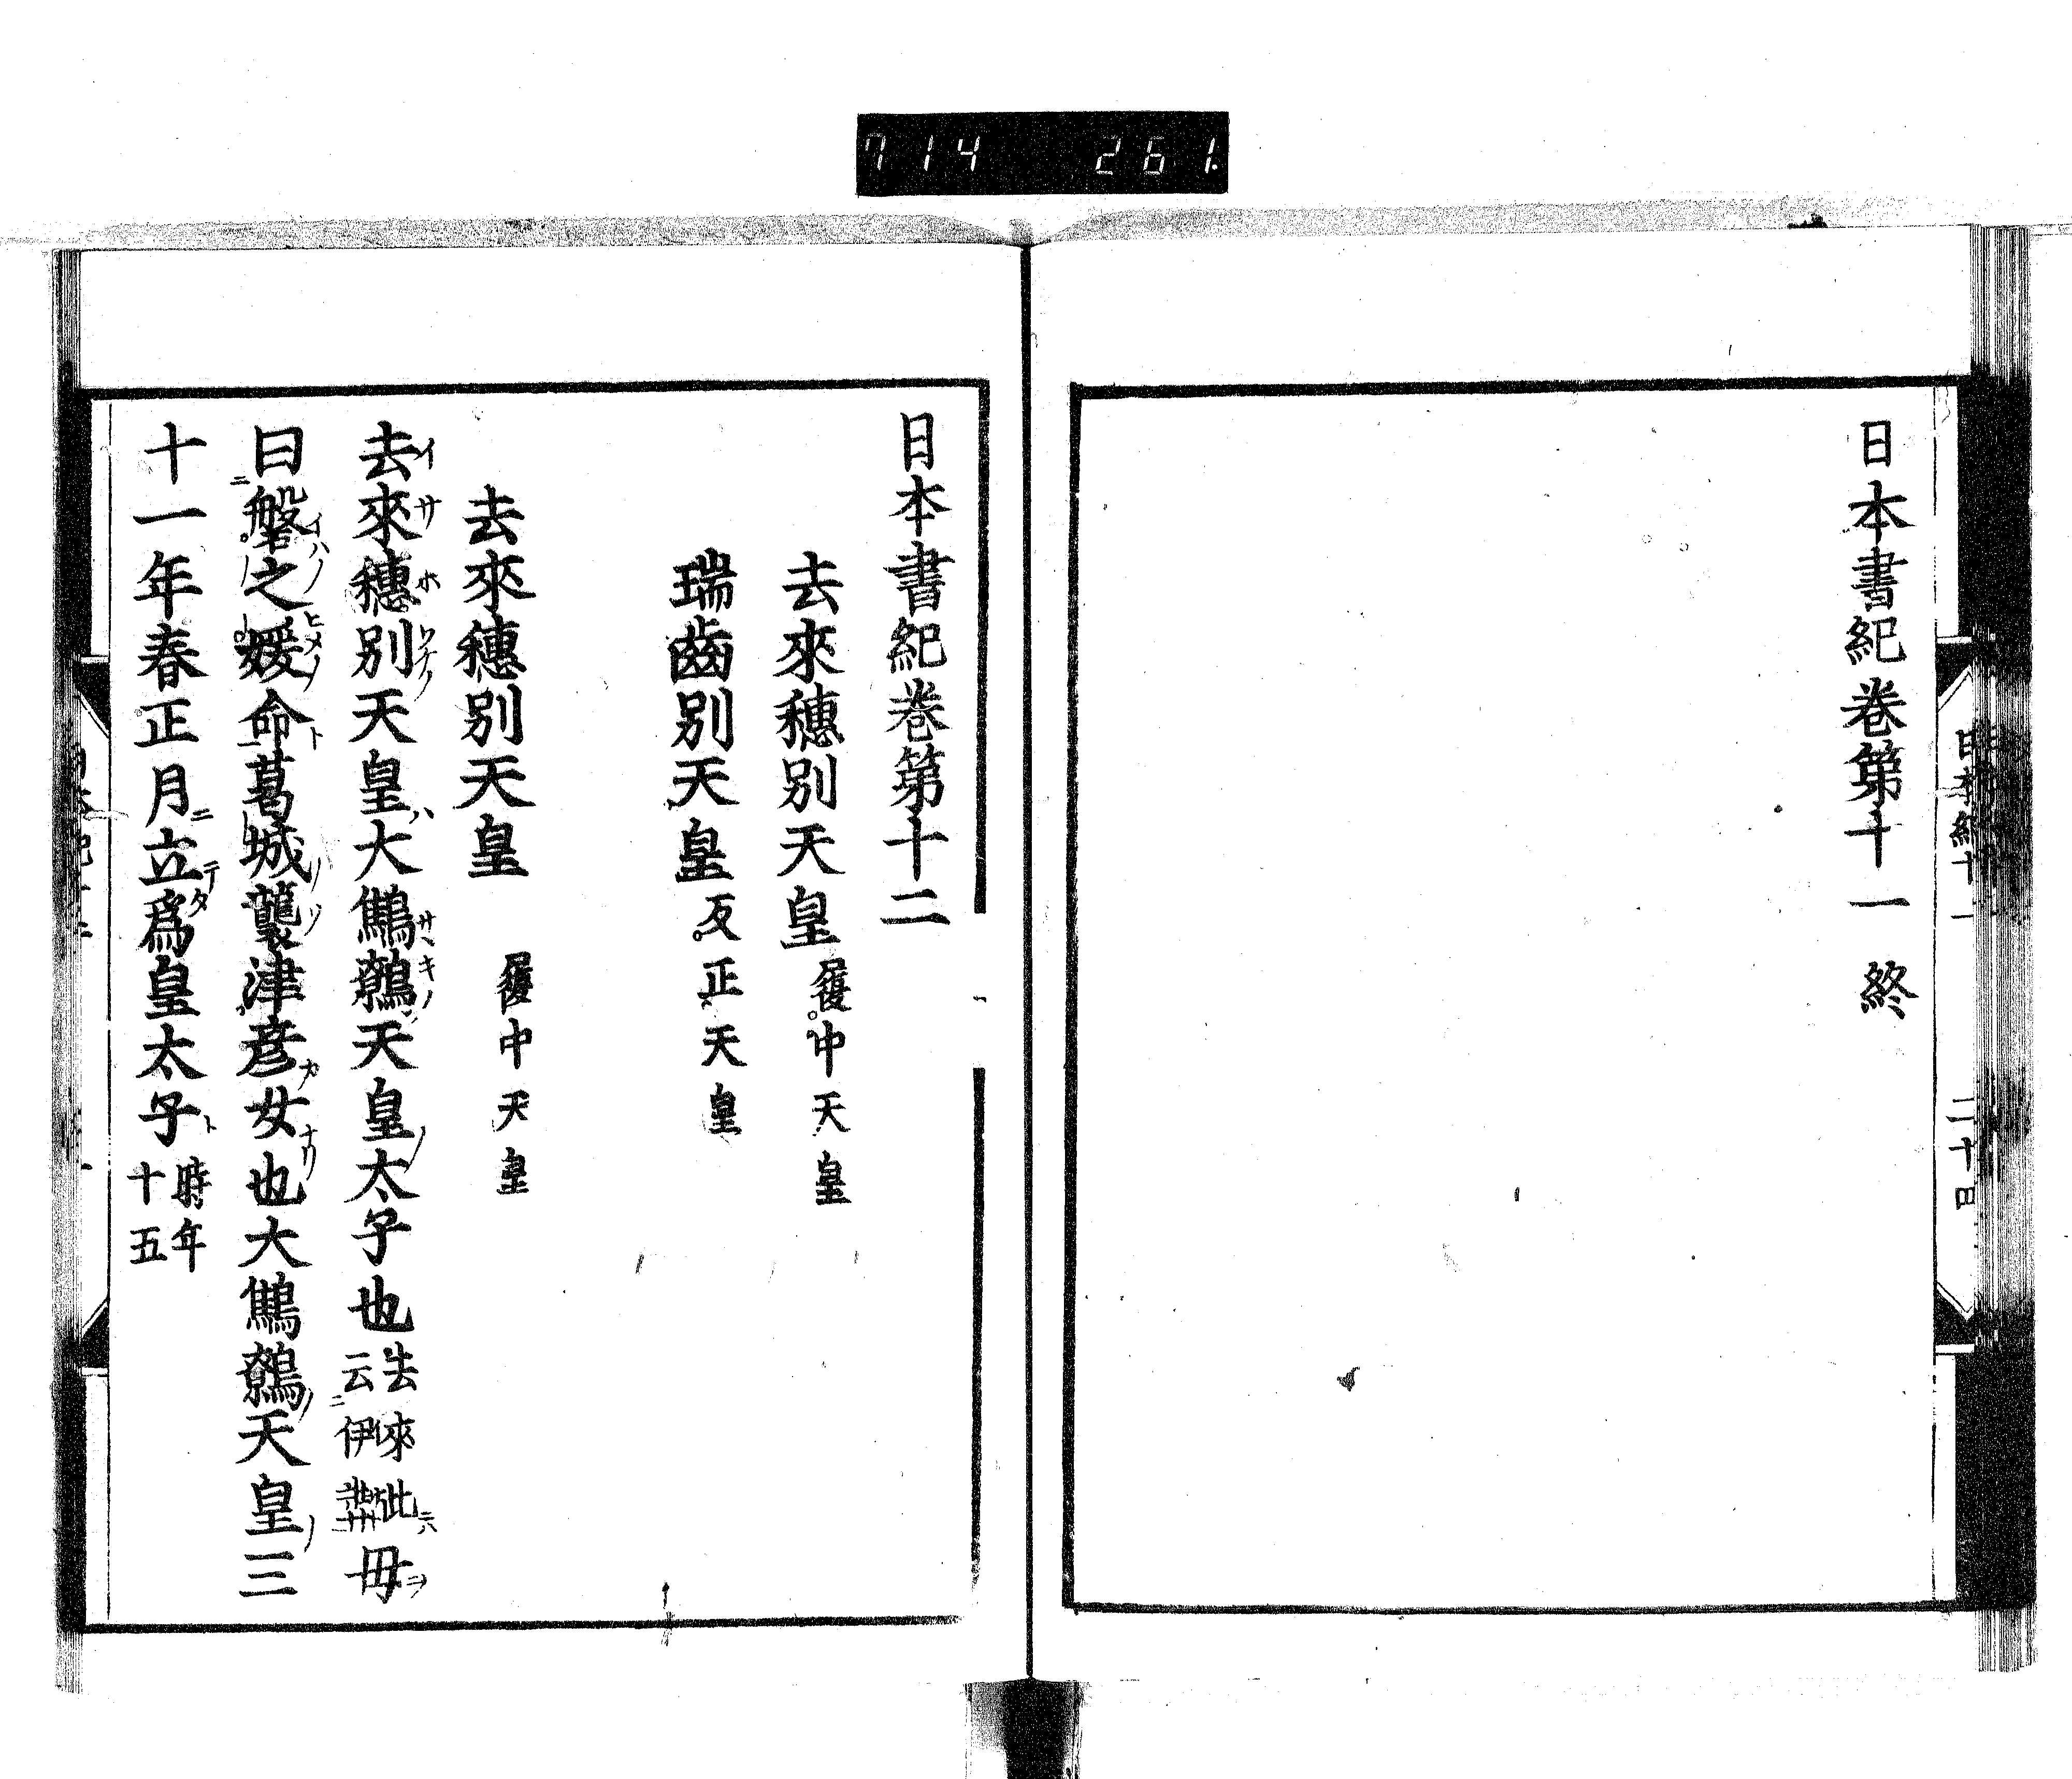 714 261
日本書紀卷第十一 終
日本紀十一 二十四
日本書紀卷第十二
去來穗別天皇 履中天皇
瑞齒別天皇 反正天皇
去來穗別天皇 履中天皇
去來穗別天皇大鷦鷯天皇太子也 去來此云伊弉 母
曰磐之媛命葛城襲津彦女也大鷦鷯天皇三
十一年春正月立爲皇太子 時年十五